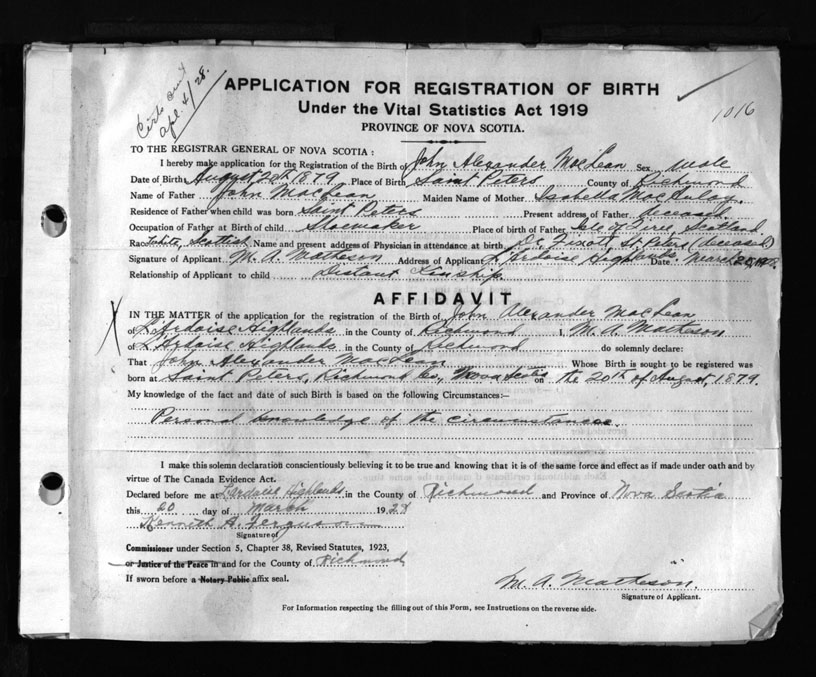 Apl 4/28.
APPLICATION FOR REGISTRATION OF BIRTH
Under the Vital Statistics Act 1919
1016
PROVINCE OF NOVA SCOTIA.
TO THE REGISTRAR GENERAL OF NOVA SCOTIA :
I hereby make application for the Registration of the Birth of John Alexander MacLean Sex Male
Date of Birth August 20th 1879 Place of Birth Saint Peters County of Richmond
Name of Father John MacLean Maiden Name of Mother Isabella MacAulay
Residence of Father when child was born Saint Peters Present address of Father deceased.
Occupation of Father at Birth of child Shoemaker Place of birth of Father Isle of Tiree, Scotland
Race White, Scottish Name and present address of Physician in attendance at birth Dr Fixott, St. Peters (deceased)
Signature of Applicant M. A. Matheson Address of Applicant L'Ardoise Highlands Date March
Relationship of Applicant to child Distant Kinship
AFFIDAVIT
IN THE MATTER of the application for the registration of the Birth of John Alexander MacLean
of L'Ardoise Highlands in the County of Richmond M. A. Matheson
of L'Ardoise Highlands in the County of Richmond do solemnly declare:
That John Alexander MacLean Whose Birth is sought to be registered was
born at Saint Peters, Richmond Co., Nova Scotia on the 20th of August, 1879.
My knowledge of the fact and date of such Birth is based on the following Circumstances:—
Personal knowledge of the circumstances.
I make this solemn declaration conscientiously believing it to be true and knowing that it is of the same force and effect as if made under oath and by
virtue of The Canada Evidence Act.
Declared before me at Lardoise Highlands in the County of Richmond and Province of Nova Scotia
this 20 day of March 1928
Kenneth A. Ferguson
Signature of
Commissioner under Section 5, Chapter 38, Revised Statutes, 1923,
or Justice of the Peace in and for the County of Richmond
If sworn before a Notary Public affix seal.
M. A. Matheson.
Signature of Applicant.
For Information respecting the filling out of this Form, see Instructions on the reverse side.